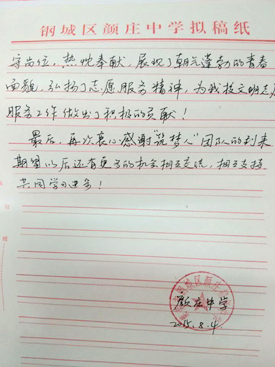 钢城区颜庄中学拟稿纸
守岗位，热忱奉献，展现了朝气蓬勃的青春
面貌，弘扬了志愿服务精神，为我校文明志愿
服务工作做出了积极的贡献！
最后，再次衷心感谢"筑梦人"团队的到来
期望以后还有更多的机会相互交流，相互支持
共同学习进步！
颜庄中学
2015.8.4